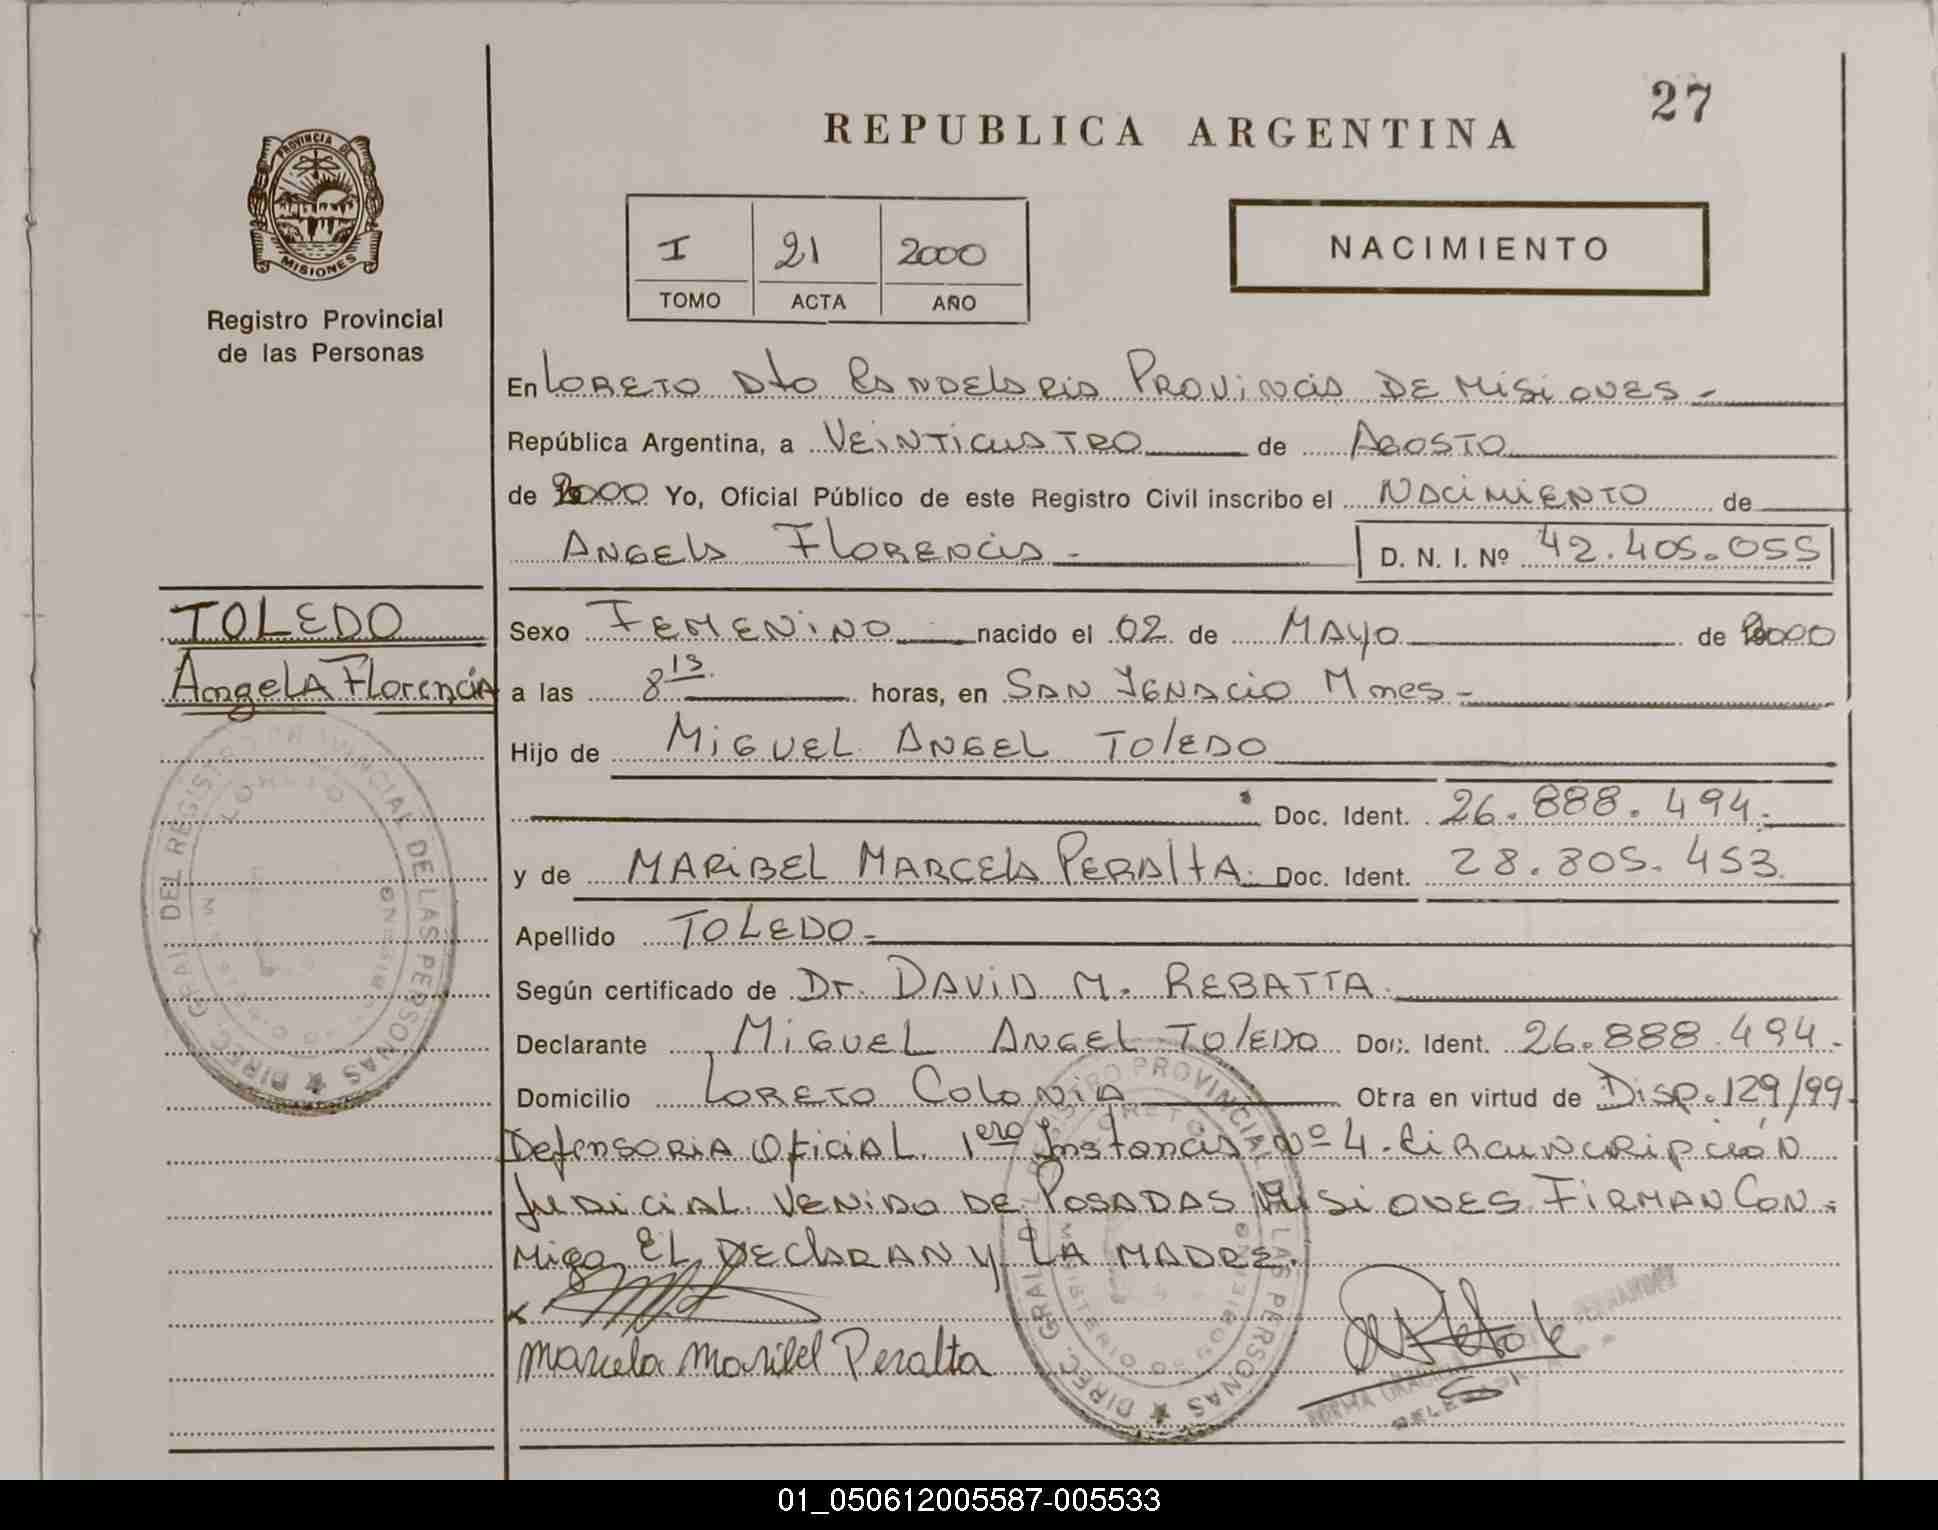 27
REPUBLICA ARGENTINA
PROVINCIA DE
MISIONES
Registro Provincial
de las Personas
I 21 2000
TOMO ACTA AÑO
NACIMIENTO
En LORETO Dto CANDELARIA PROVINCIA DE MISIONES -
República Argentina, a VEINTICUATRO de AGOSTO
de 2000 Yo, Oficial Público de este Registro Civil inscribo el NACIMIENTO de
ANGELA FLORENCIA - D. N. I. Nº 42.405.055
TOLEDO
Angela Florencia
Sexo FEMENINO nacido el 02 de MAYO de 2000
a las 8 15 horas, en SAN IGNACIO Mnes -
Hijo de MIGUEL ANGEL TOLEDO
Doc. Ident. 26.888.494.-
y de MARIBEL MARCELA PERALTA. Doc. Ident. 28.805.453
Apellido TOLEDO -
Según certificado de Dr. DAVID M. REBATTA.
Declarante MIGUEL ANGEL TOLEDO Doc. Ident. 26.888.494.-
Domicilio LORETO COLONIA Obra en virtud de Disp. 129/99.
Defensoria Oficial 1ero Instancia Nº 4. Circuncripción
Judicial VENIDO DE POSADAS MISIONES FIRMAN CON-
Migo EL DECLARAN y LA MADRE.
x
Marcela Maribel Peralta
DIREC. GRAL DEL REGISTRO PROVINCIAL DE LAS PERSONAS
LORETO
MINISTERIO DE GOBIERNO
DIREC. GRAL DEL REGISTRO PROVINCIAL DE LAS PERSONAS
LORETO
MINISTERIO DE GOBIERNO
NORMA FERNANDEZ
01_050612005587-005533